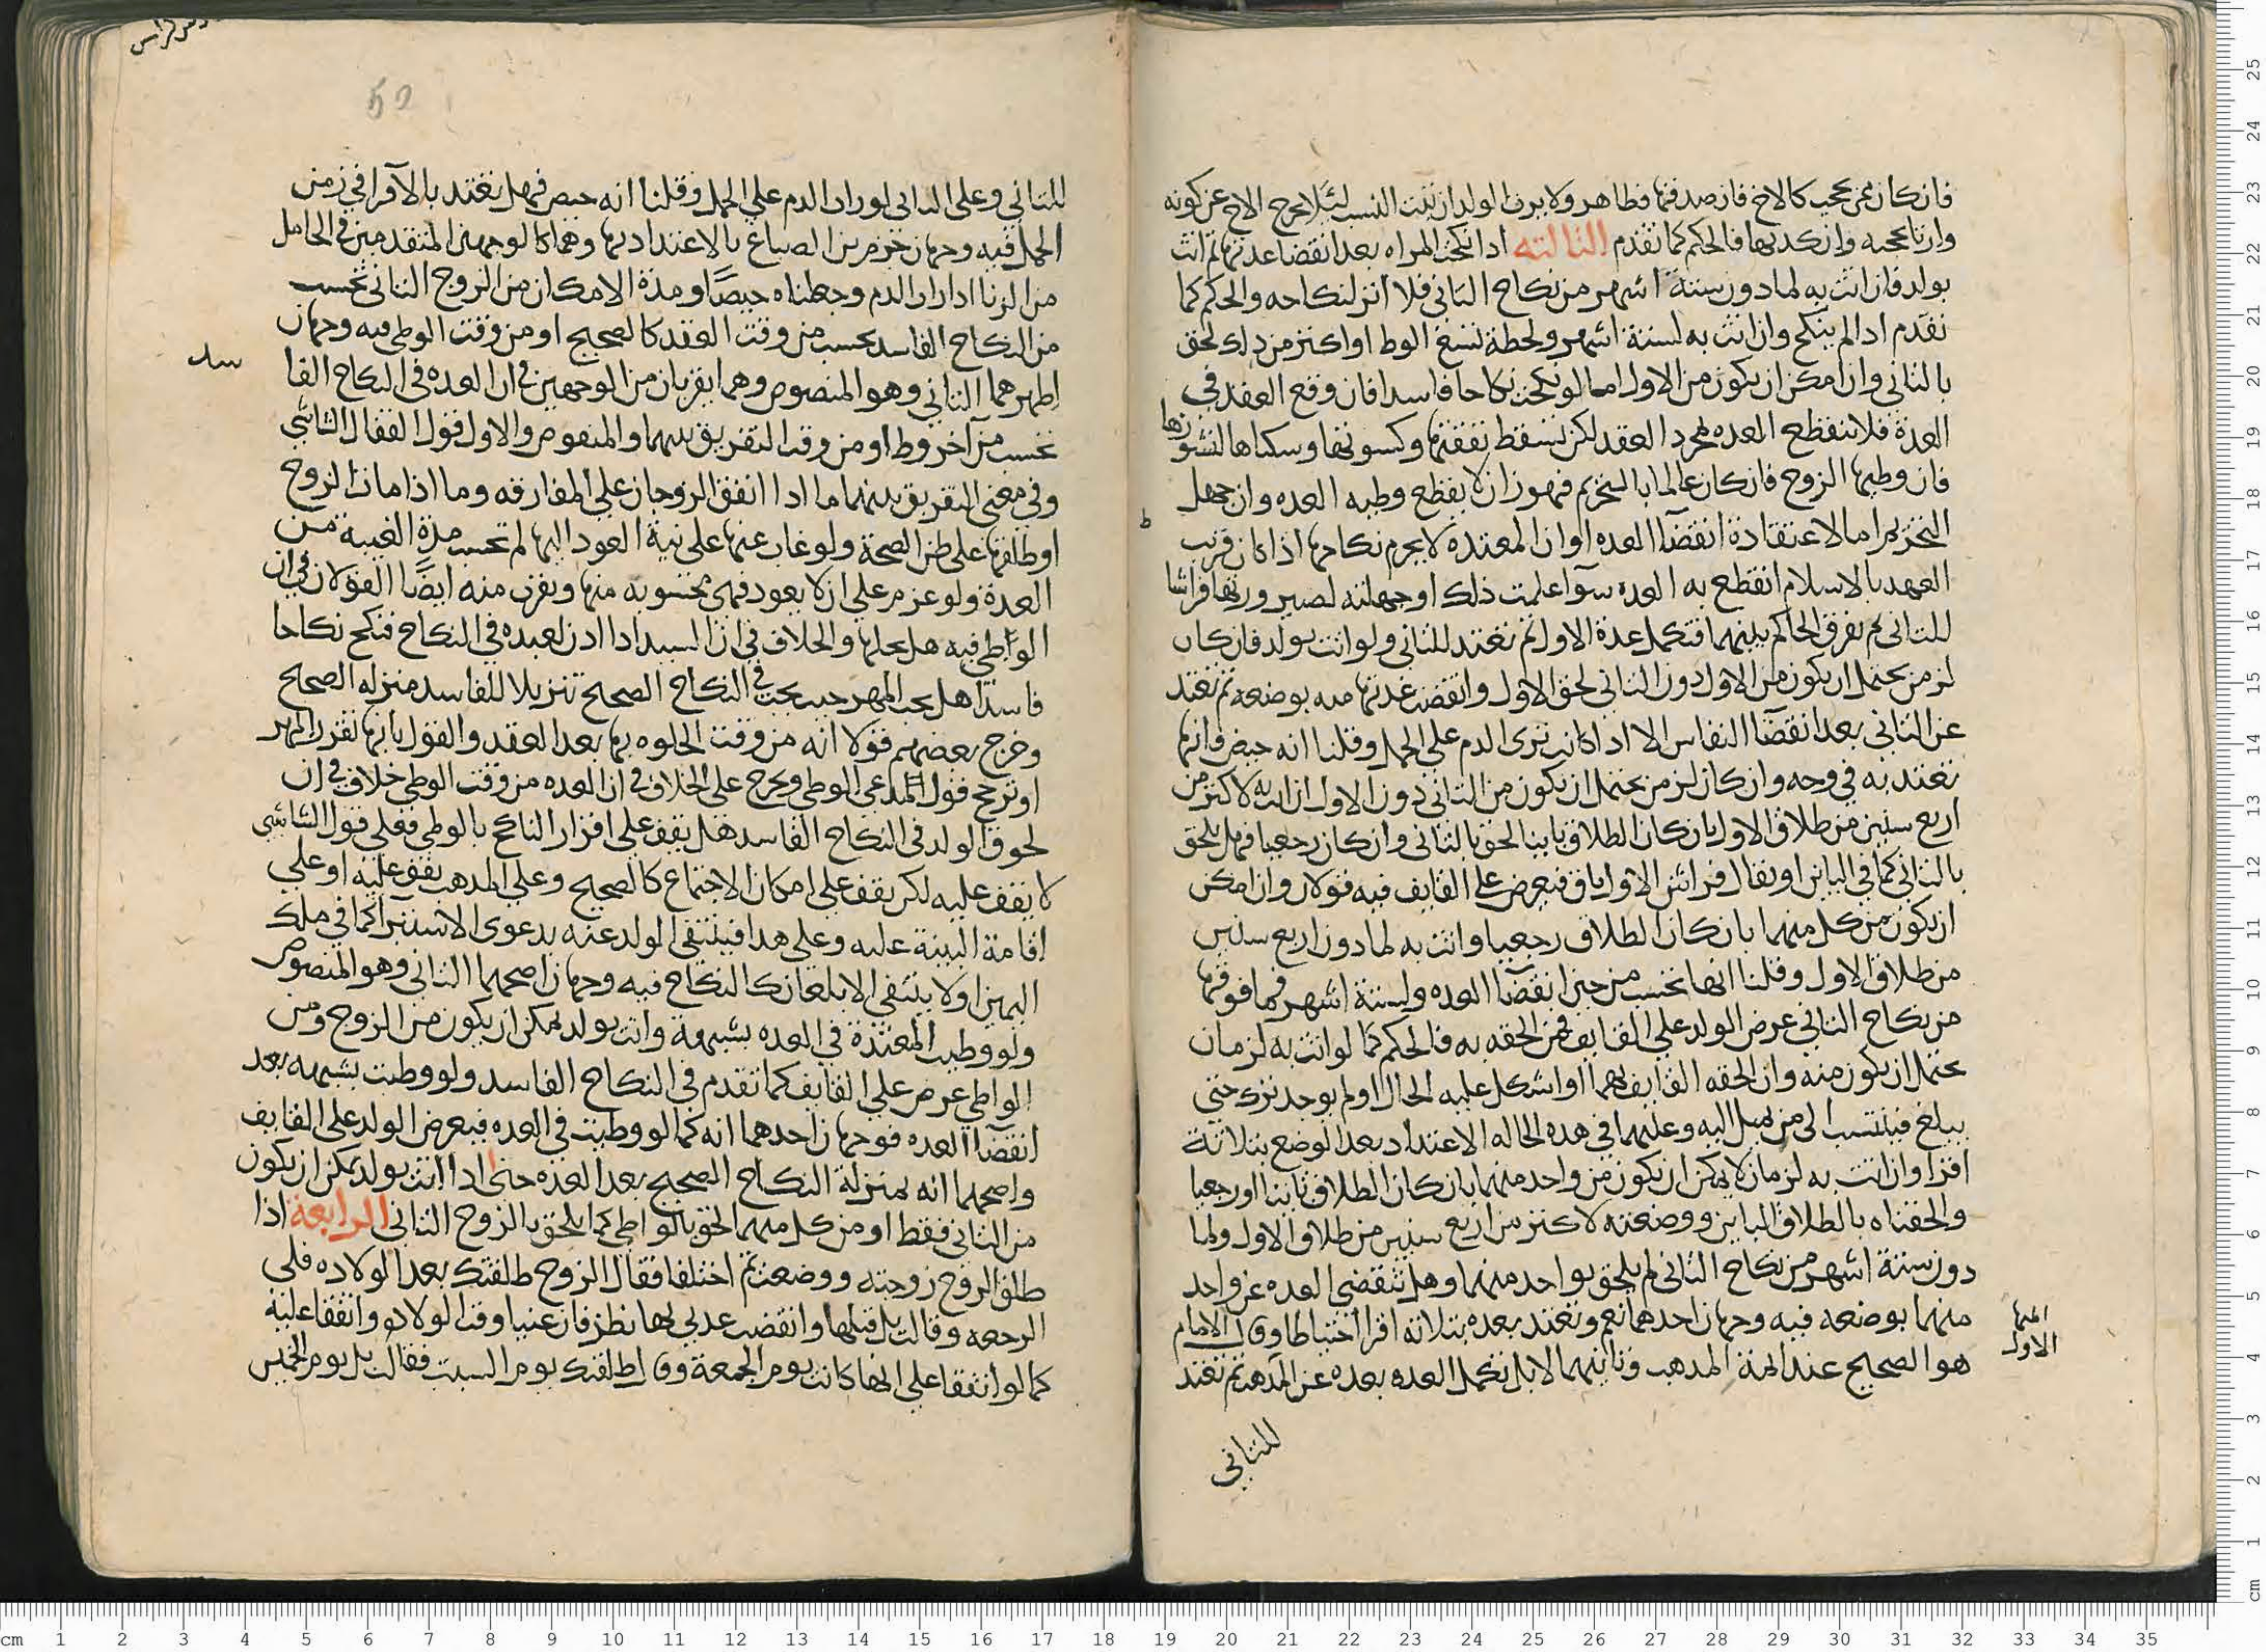 فان كان ممن يحجب كالاخ فان صدقتها فظاهر ولا يرث الولد ان ثبت النسب لئلا يخرج الاخ عن كونه
وارثا بحجبه وان كذبها فالحكم كما تقدم الثالثة اذا نكحت المراه بعد انقضا عدتها ثم اتت
بولد فان اتت به لما دون ستة اشهر من نكاح الثاني فلا اثر لنكاحه والحكم كما
تقدم اذا لم ينكح وان اتت به لستة اشهر ولحظة تسع الوط او اكثر من ذلك لحق
بالثاني وان امكن ان يكون من الاول اما لو نكحت نكاحا فاسدا فان وقع العقد في
العدة فلا تنقطع العده لمجرد العقد لكن تسقط نفقتها وكسوتها وسكناها لنشوزها
فان وطيها الزوج فان كان عالما بالتحريم فهو زان لا يقطع وطيه العده وان جهل
التحريم اما لاعتقاده انقضا العده او ان المعتده لا يحرم نكاحها اذا كان قريب
العهد بالاسلام انقطع به العده سوا علمت ذلك او جهلته لصيرورتها فراشا
للثاني ثم يفرق الحاكم بينهما فتكمل عدة الاول ثم تعتد للثاني ولو اتت بولد فان كان
لزمن يحتمل ان يكون من الاول دون الثاني لحق الاول وانقضت عدتها منه بوضعه ثم تعتد
عن الثاني بعد انقضا النفاس الا اذا كانت ترى الدم على الحمل وقلنا انه حيض فانها
تعتد به في وجه وان كان لزمن يحتمل ان يكون من الثاني دون الاول ان اتت به لاكثر من
اربع سنين من طلاق الاول بان كان الطلاق باينا لحق بالثاني وان كان رجعيا فهل يلحق
بالثاني كما في الباين او يقال فراش الاول باق فيعرض على القايف فيه قولان وان امكن
ان يكون من كل منهما بان كان الطلاق رجعيا واتت به لما دون اربع سنين
من طلاق الاول وقلنا انها تحتسب من حين انقضا العده ولستة اشهر فما فوقها
من نكاح الثاني عرض الولد على القايف فمن الحقه به فالحكم كما لو اتت به لزمان
يحتمل ان يكون منه وان الحقه القايف بهما او اشكل عليه الحال او لم يوجد ترك حتى
يبلغ فينتسب الى من يميل اليه وعليهما في هذه الحاله الاعتداد بعد الوضع بثلاثة
اقرا وان اتت به لزمان لا يمكن ان يكون من واحد منهما بان كان الطلاق باينا او رجعيا
والحقناه بالطلاق الباين ووضعته لاكثر من اربع سنين من طلاق الاول ولما
دون ستة اشهر من نكاح الثاني لم يلحق بواحد منهما وهل تنقضي العده عن واحد
منهما بوضعه فيه وجهان احدهما نعم وتعتد بعده بثلاثه اقرا احتياطا وقال الامام
هو الصحيح عند ايمة المذهب وثانيهما لا بل تكمل العده بعده عن المذهب ثم تعتد
للثاني
للثاني وعلى الثاني لو رات الدم على الحمل وقلنا انه حيض فهل تعتد بالاقرا في زمن
الحمل فيه وجهان جزم ابن الصباغ بالاعتداد بها وهما كالوجهين المتقدمين في الحامل
من الزنا اذا رات الدم وجعلناه حيضا ومدة الامكان من الزوج الثاني تحسب
من النكاح الفاسد تحسب من وقت العقد كالصحيح او من وقت الوطي فيه وجهان
اظهرهما الثاني وهو المنصوص وهما يقربان من الوجهين في ان العده في النكاح الفا
تحسب من آخر وط او من وقت التفريق بينهما والمنصوص والاول قول القفال الشاشي
وفي معنى التفريق بينهما ما اذا اتفق الزوجان على المفارقه وما اذا مات الزوج
او طلقها على ظن الصحة ولو غاب عنها على نية العود اليها لم تحسب مدة الغيبة من
العدة ولو عزم على ان لا يعود فهي محسوبه منها ويقرب منه ايضا القولان في ان
الواطي فيه هل يحلها والخلاف في ان السيد اذا اذن لعبده في النكاح فنكح نكاحا
فاسدا هل يجب المهر حيث يجب في النكاح الصحيح تنزيلا للفاسد منزله الصحيح
وخرج بعضهم قولا انه من وقت الخلوه بها بعد العقد والقول بانها تقرر المهر
او ترجح قول المدعي الوطي ويخرج على الخلاف في ان العده من وقت الوطي خلاف في ان
لحوق الولد في النكاح الفاسد هل يقف على اقرار الناكح بالوطي فعلى قول الشاشي
لا يقف عليه لكن يقف على امكان الاجتماع كالصحيح وعلى المذهب يقف عليه او على
اقامة البينة عليه وعلى هذا فينتفي الولد عنه بدعوى الاستبرا كما في ملك
اليمين او لا ينتفي الا بلعان كالنكاح فيه وجهان اصحهما الثاني وهو المنصوص
ولو وطيت المعتدة في العده بشبهة واتت بولد يمكن ان يكون من الزوج ومن
الواطي عرض على القايف كما تقدم في النكاح الفاسد ولو وطيت بشبهه بعد
انقضا العده فوجهان احدهما انه كما لو وطيت في العده فيعرض الولد على القايف
واصحهما انه بمنزلة النكاح الصحيح بعد العده حتى اذا اتت بولد يمكن ان يكون
من الثاني فقط او من كل منهما لحق بالواطي كما يلحق بالزوج الثاني الرابعة اذا
طلق الزوج زوجته ووضعت ثم اختلفا فقال الزوج طلقتك بعد الولاده فلي
الرجعه وقالت بل قبلها وانقضت عدتي بها نظر فان عينا وقت الولاده واتفقا عليه
كما لو اتفقا على انها كانت يوم الجمعة وقال طلقتك يوم السبت فقالت بل يوم الخميس